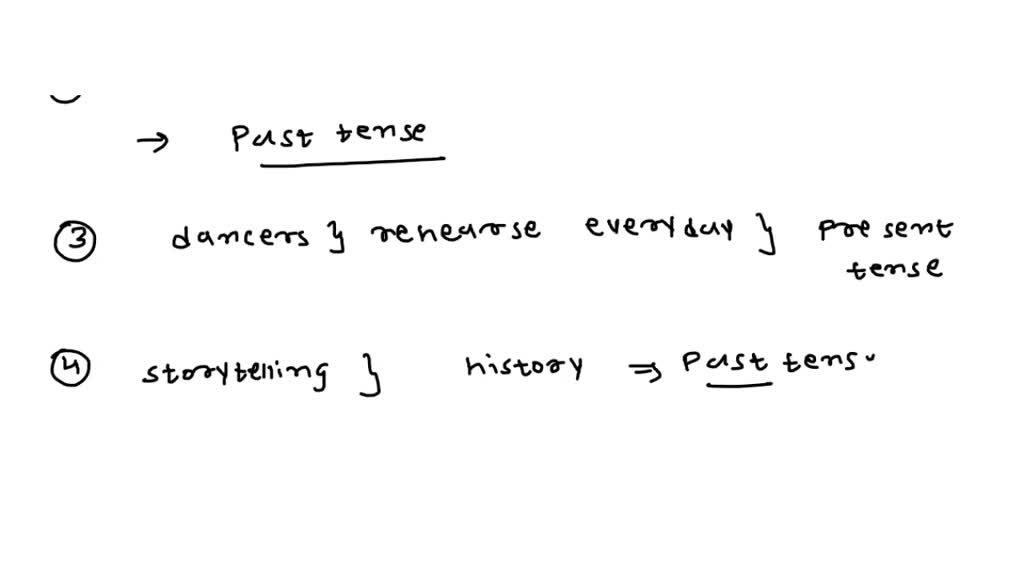 → Past tense
③ dancers } rehearse everyday } present
tense
④ storytelling } history ⇒ Past tens